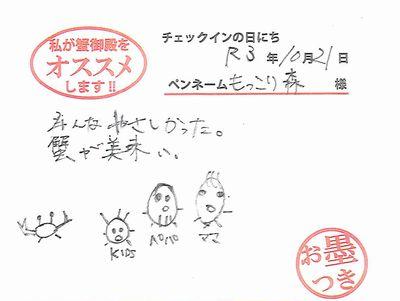 私が蟹御殿を
オススメ
します!!
チェックインの日にち
R3年10月21日
ペンネーム もっこり森 様
みんなやさしかった。
蟹が美味い。
KIDS
ママ
お墨
つき